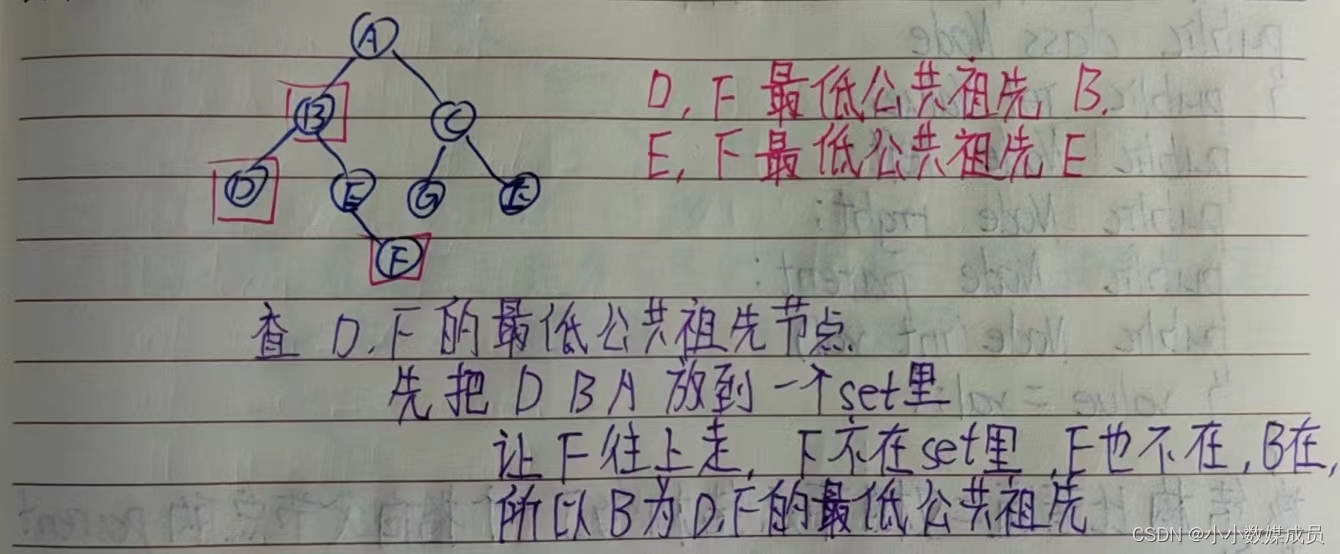 A
B
C
D
E
G
F
D, F 最低公共祖先, B.
E, F 最低公共祖先 E
查 D, F 的最低公共祖先节点.
先把 D B A 放到一个set里
让 F 往上走, F不在set里, E也不在, B在,
所以B为D,F的最低公共祖先
CSDN @小小数媒成员